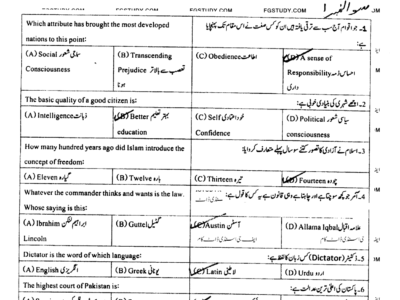 FGSTUDY.COM FGSTUDY.COM FGSTUDY.COM
Which attribute has brought the most developed nations to this point:
1- جو اقوام آج سب سے ترقی یافتہ ہیں ان کو کس صفت نے اس مقام تک پہنچایا
(A) Social سماجی شعور Consciousness
(B) Transcending Prejudice تعصب سے بالاتر ہونا
(C) Obedience اطاعت
(D) A sense of Responsibility احساس ذمہ داری
The basic quality of a good citizen is:
2- اچھے شہری کی بنیادی خوبی ہے:
(A) Intelligence ذہانت
(B) Better بہتر تعلیم education
(C) Self خود اعتمادی Confidence
(D) Political سیاسی شعور consciousness
How many hundred years ago did Islam introduce the concept of freedom:
3- اسلام نے آزادی کا تصور کتنے سو سال پہلے متعارف کروایا:
(A) Eleven گیارہ
(B) Twelve بارہ
(C) Thirteen تیرہ
(D) Fourteen چودہ
Whatever the commander thinks and wants is the law. Whose saying is this:
(A) Ibrahim ابراہیم لنکن Lincoln
(B) Guttel گٹیل
(C) Austin آسٹن
(D) Allama Iqbal علامہ اقبال
Dictator is the word of which language:
5- ڈکٹیٹر (Dictator) کس زبان کا لفظ ہے:
(A) English انگریزی
(B) Greek یونانی
(C) Latin لاطینی
(D) Urdu اردو
The highest court of Pakistan is:
6- پاکستان کی اعلیٰ ترین عدالت ہے: